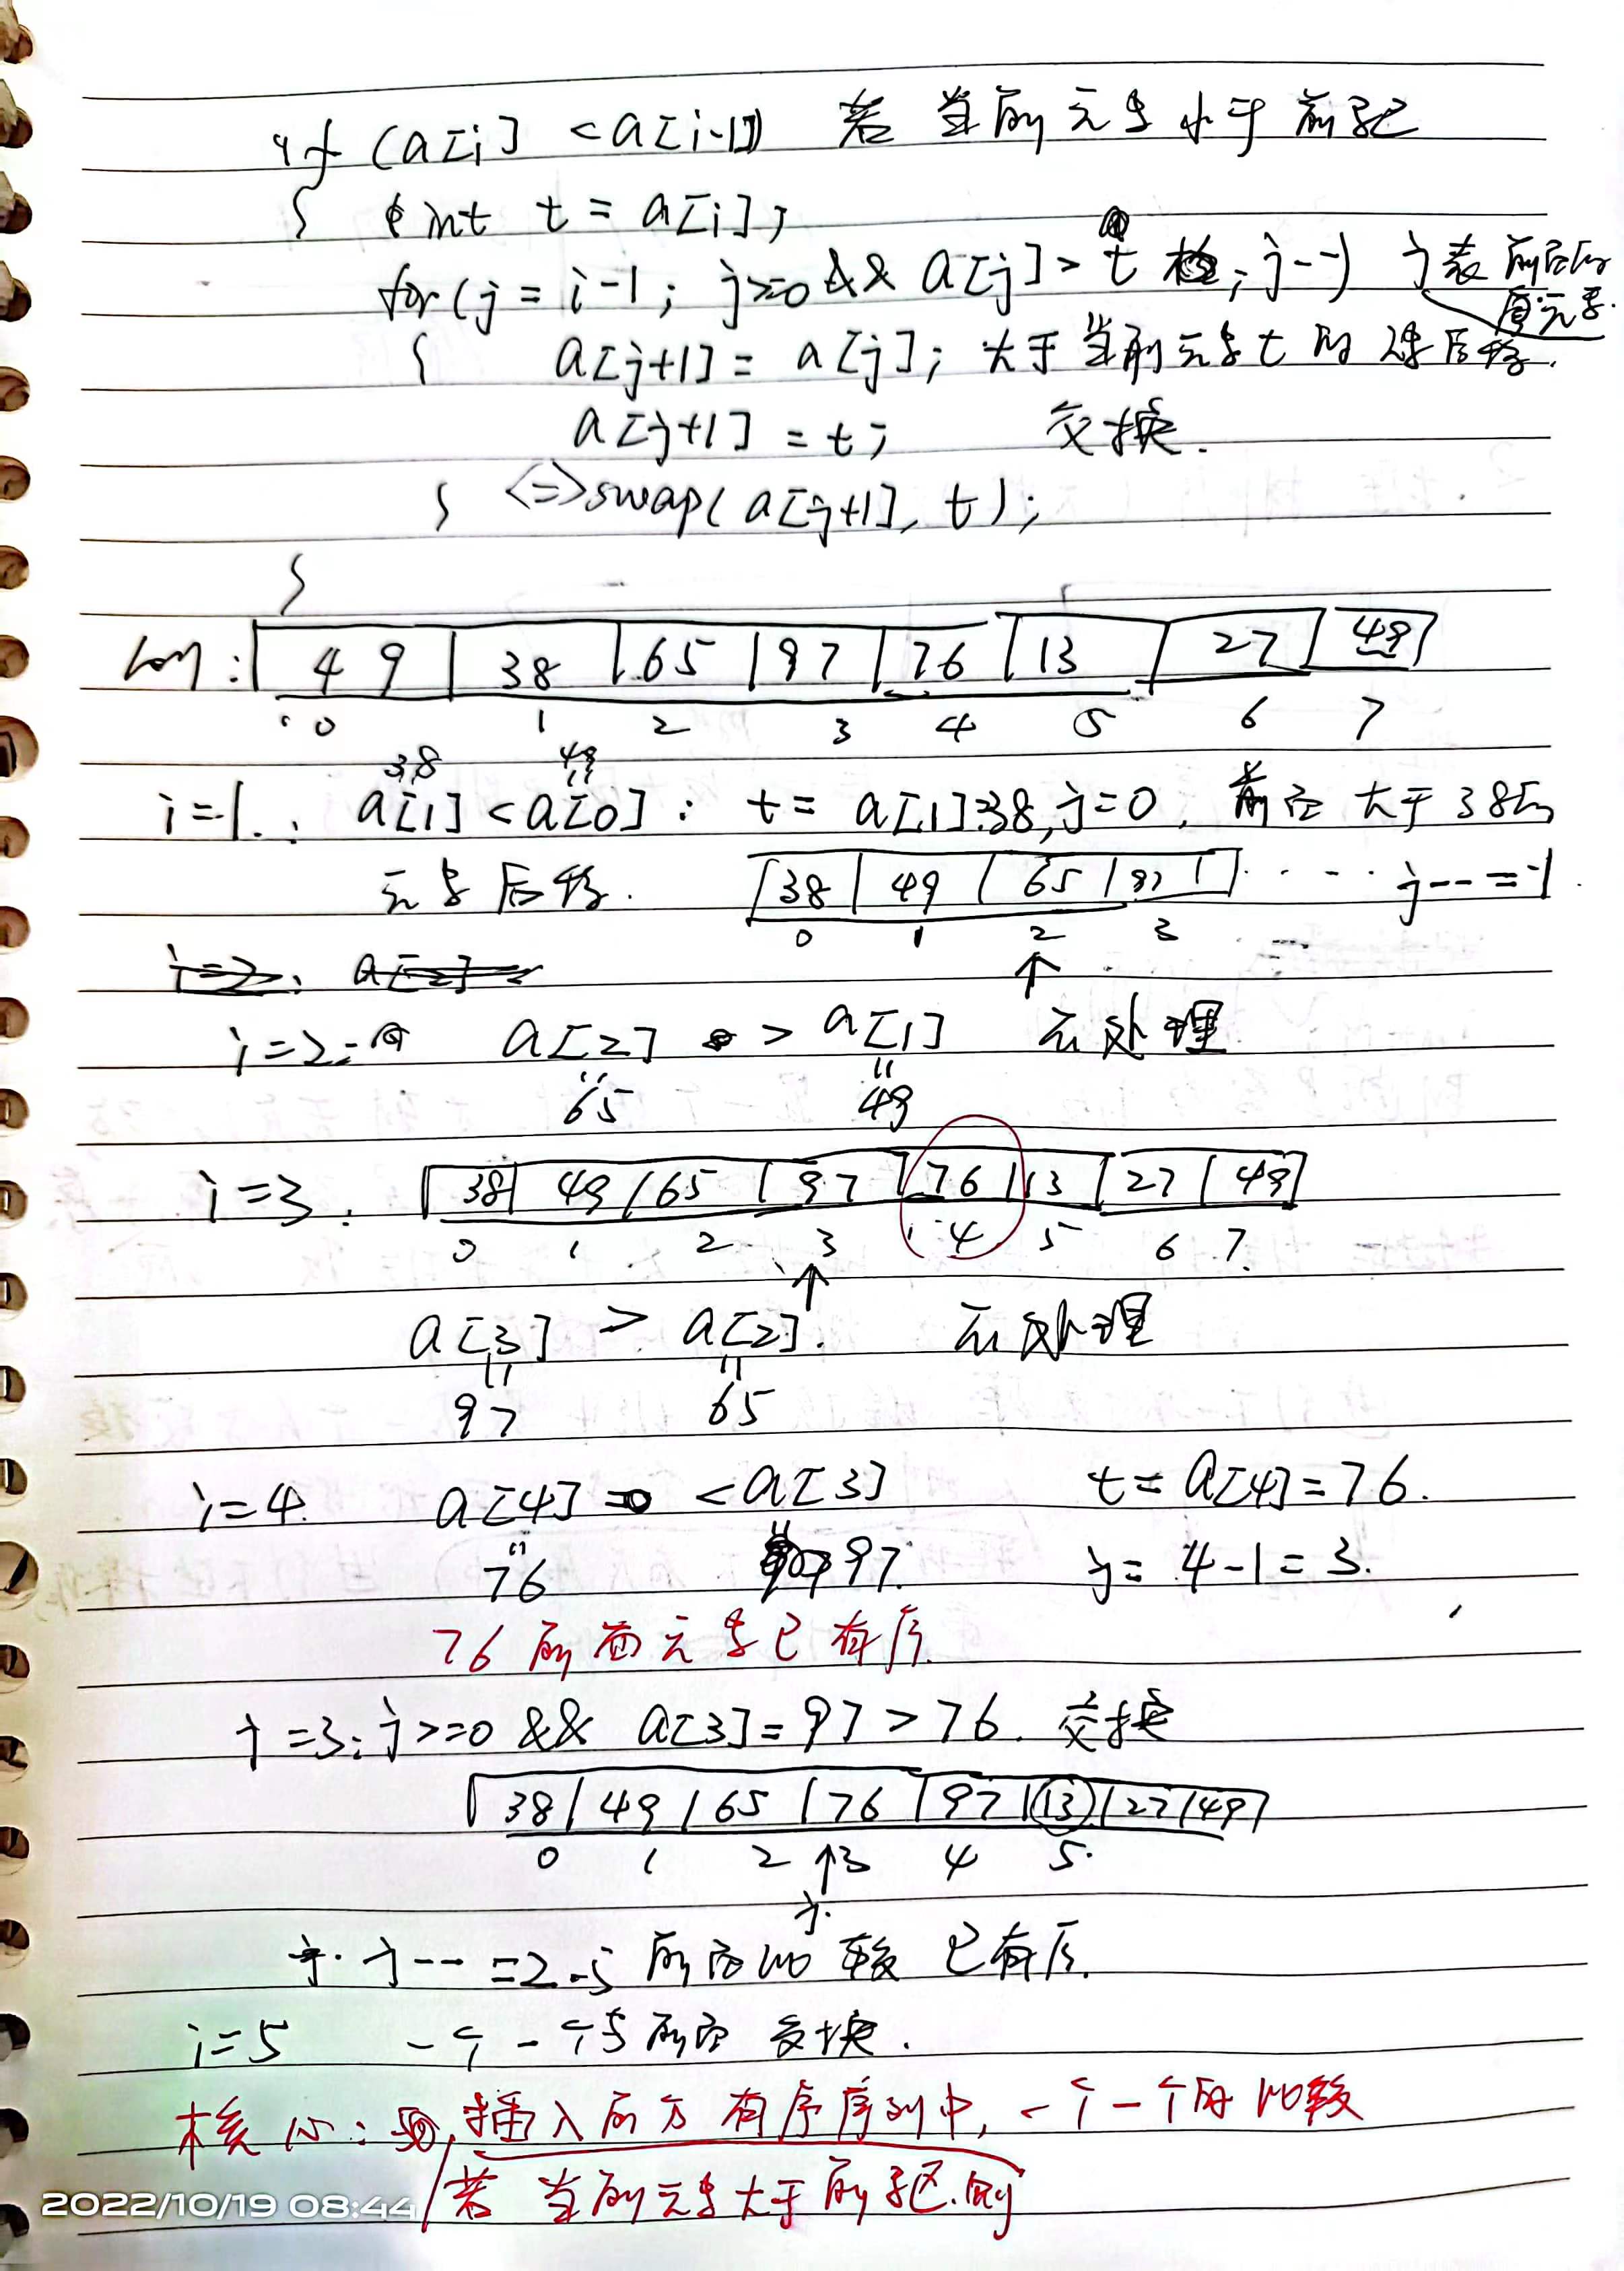 if (a[i] < a[i-1]) 若当前元素小于前驱
{ int t = a[i];
for (j = i-1; j>=0 && a[j] > t ; j--) j表前后的
原元素.
{ a[j+1] = a[j]; 大于当前元素t的 后移.
a[j+1] = t; 交换.
} <=> swap( a[j+1], t);
}
49 38 65 97 76 13 27 49
0 1 2 3 4 5 6 7
38 49
i=1: a[1] < a[0]: t = a[1]=38, j=0, 前面大于38的
元素后移. 38 49 65 97 .... j-- = -1.
0 1 2 3
i=2: a[2]
i=2: a[2] > a[1] 不处理
65 49
i=3: 38 49 65 97 76 13 27 49
0 1 2 3 4 5 6 7
a[3] > a[2]. 不处理
97 65
i=4. a[4] < a[3] t = a[4] = 76.
76 97. j = 4-1 = 3.
76前面元素已有序.
j=3: j>=0 && a[3] = 97 > 76. 交换
38 49 65 76 97 13 27 49
0 1 2 3 4 5.
j.
j-- = 2 与前面比较 已有序.
i=5 一个一个与前面交换.
核心: 插入前方有序序列中, 一个一个的比较
若当前元素大于前驱.则
2022/10/19 08:44